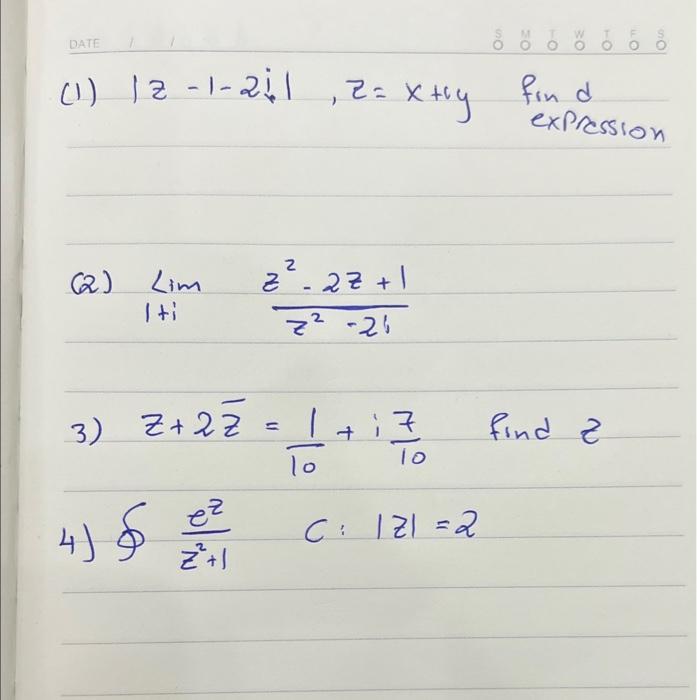 DATE / /
S M T W T F S
(1) |z - 1 - 2i|, z = x + iy find
expression
(2) Lim z² - 2z + 1
1+i z² - 2i
3) z + 2z̅ = 1/10 + i 7/10 find z
4) ∮ e^z/(z²+1) C: |z| = 2